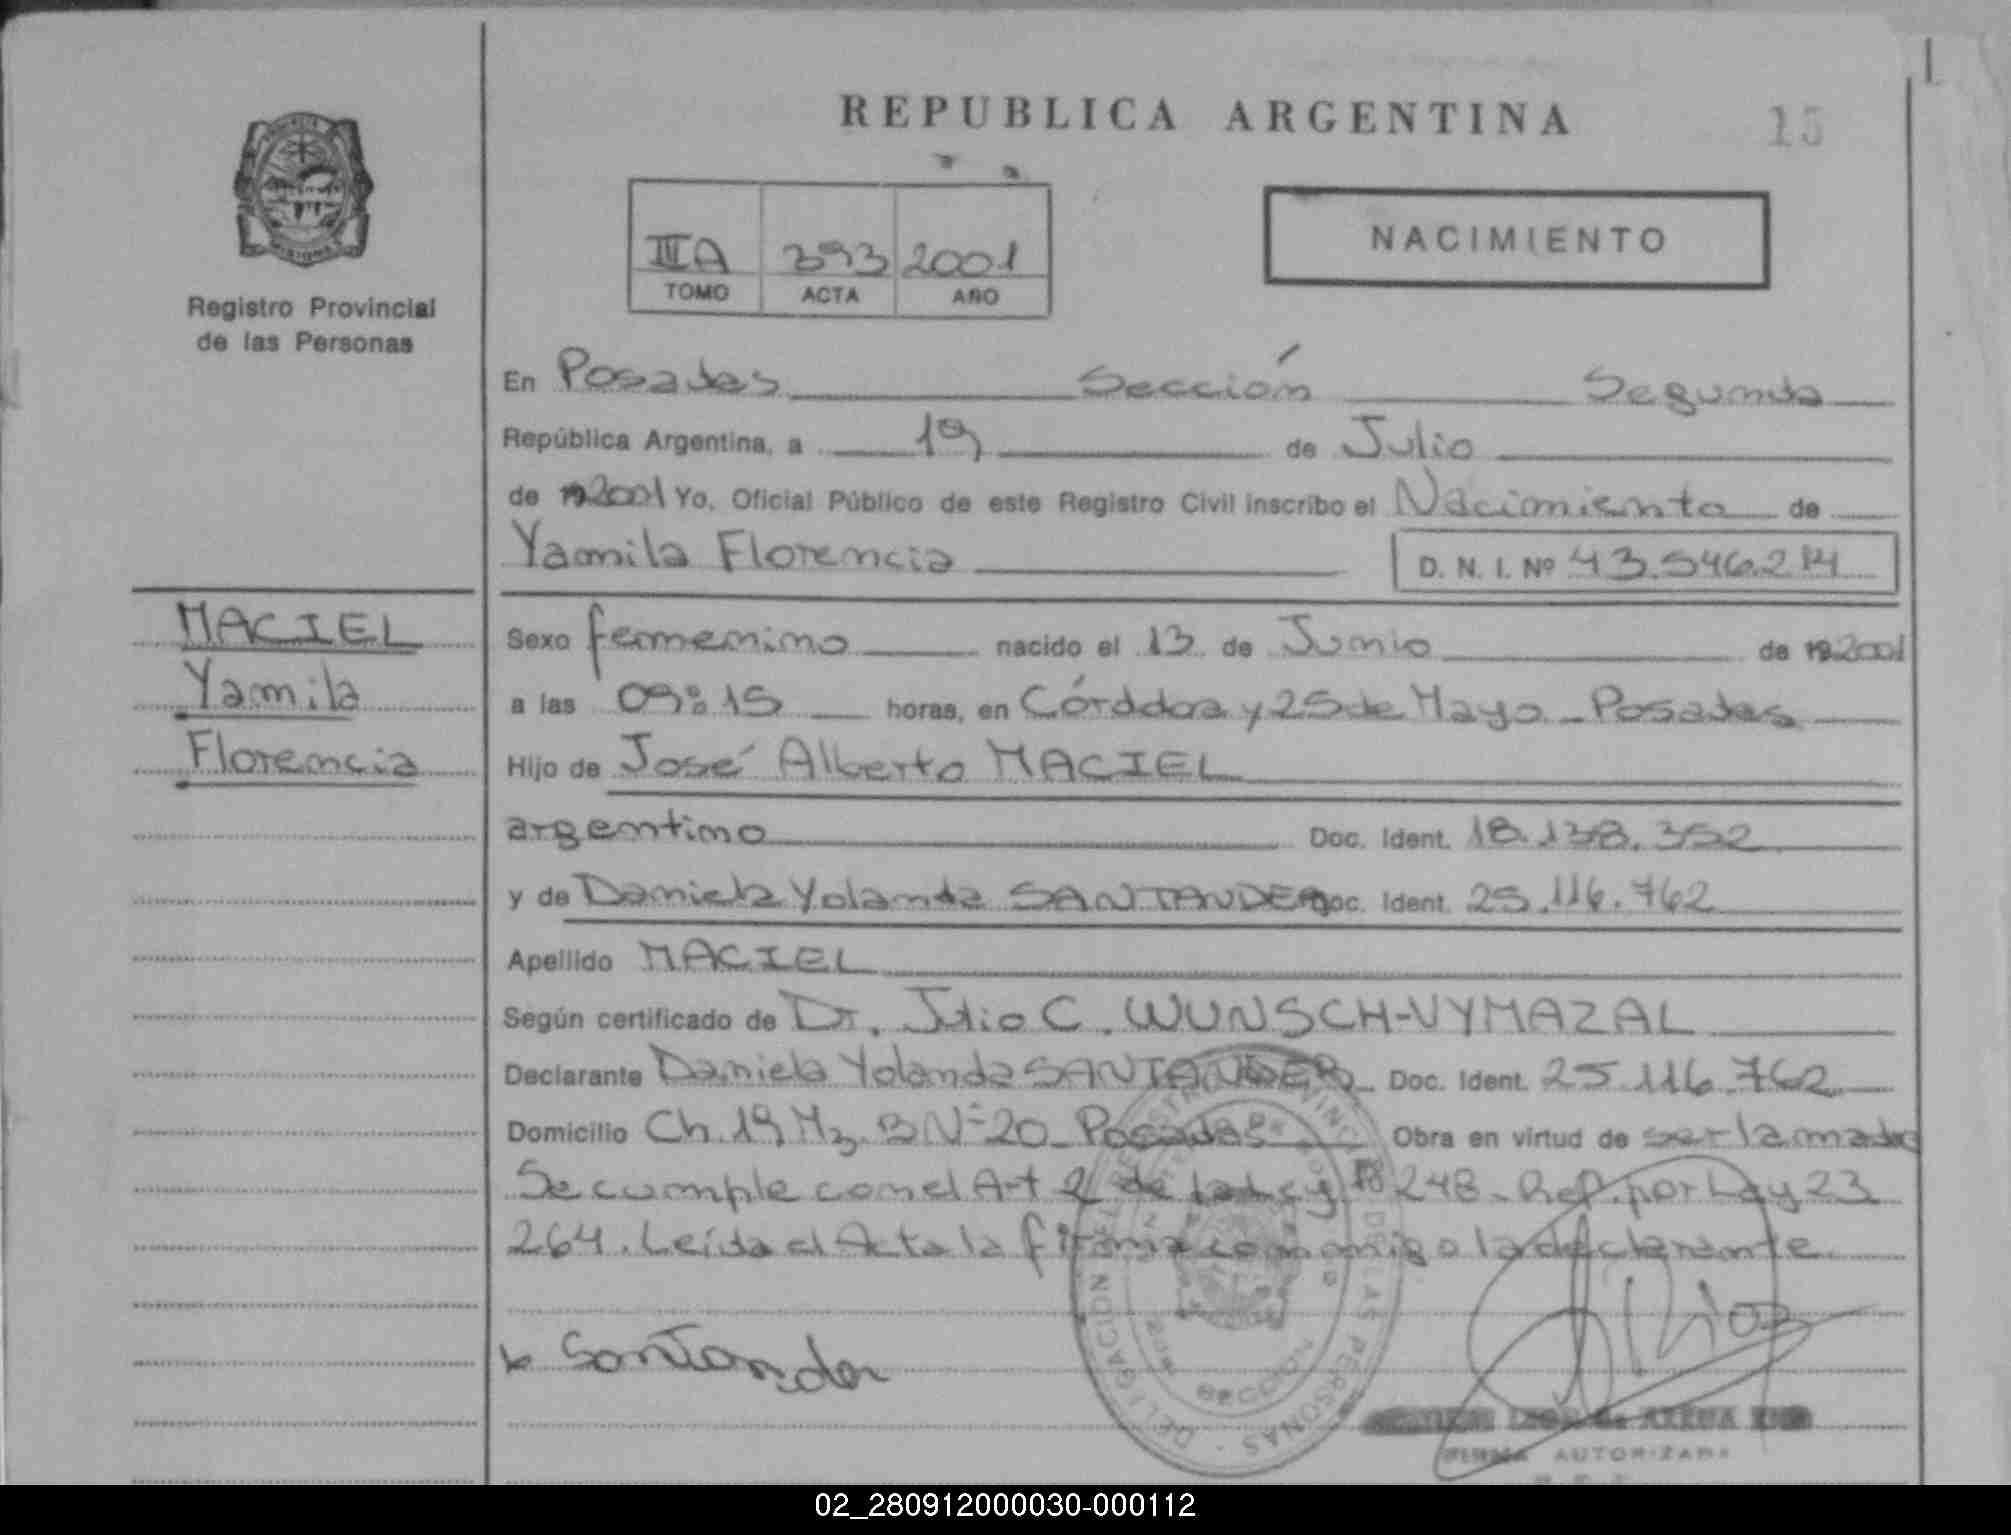 REPUBLICA ARGENTINA
15
IIIA 393 2001
TOMO ACTA AÑO
NACIMIENTO
Registro Provincial
de las Personas
En Posadas Sección Segunda
República Argentina, a 19 de Julio
de 2001 Yo, Oficial Público de este Registro Civil inscribo el Nacimiento de
Yamila Florencia D. N. I. Nº 43.546.214
MACIEL
Yamila
Florencia
Sexo femenino nacido el 13 de Junio de 2001
a las 09:15 horas, en Córdoba y 25 de Mayo - Posadas
Hijo de José Alberto MACIEL
argentino Doc. Ident. 18.138.352
y de Daniela Yolanda SANTANDER Doc. Ident. 25.116.762
Apellido MACIEL
Según certificado de Dr. Julio C. WUNSCH-VYMAZAL
Declarante Daniela Yolanda SANTANDER Doc. Ident. 25.116.762
Domicilio Ch. 19 Mz. 3 Nº 20 - Posadas Obra en virtud de ser la madre
Se cumple con el Art 2 de la Ley 18 248 - Ref. por Ley 23
264. Leída el Acta la firma conmigo la declarante
Santander
DELEGACION DEL REGISTRO PROVINCIAL DE LAS PERSONAS
SECCION
FIRMA AUTORIZADA
02_280912000030-000112